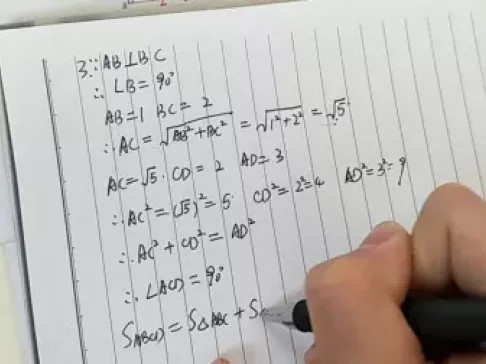 3∵AB⊥BC
∴∠B=90°
AB=1 BC=2
∴AC=√AB²+BC²=√1²+2²=√5
AC=√5·CD=2 AD=3
∴AC²=(√5)²=5 CD²=2²=4 AD²=3²=9
∴AC²+CD²=AD²
∴∠ACD=90°
SABCD=S△ABC+S